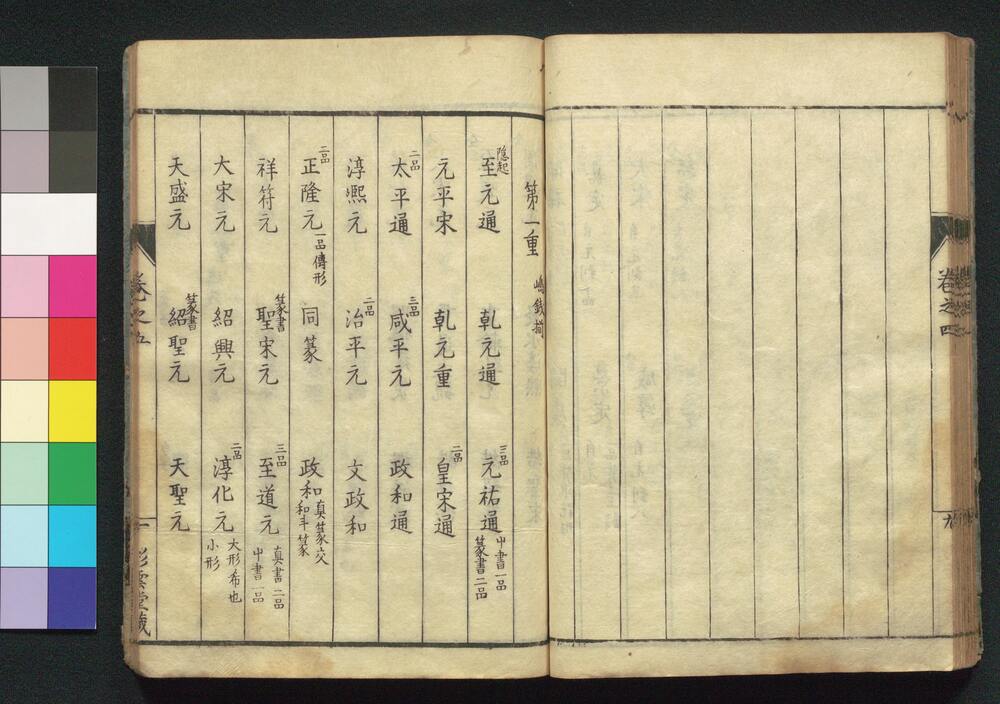 卷之四
九
第一重
嶋錢揃
隠起
至元通
乹元通
三品
元祐通
中書一品
篆書二品
元平宋
乹元重
二品
皇宋通
二品
太平通
三品
咸平元
政和通
淳熈元
二品
治平元
文政和
二品
正隆元
一品傳形
同篆
政和
真篆交
和斗篆
祥符元
篆書
聖宋元
三品
至道元
真書二品
中書一品
大宋元
紹興元
二品
淳化元
大形希也
小形
天盛元
篆書
紹聖元
天聖元
卷之五
一
彩雲堂蔵